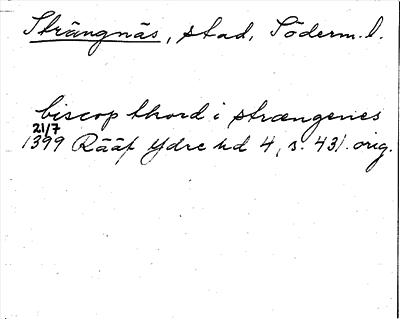 Strängnäs, stad, Söderm.l.
biscop thord i strængenes
21/7
1399 Rääf Ydre hd 4, s. 431. orig.